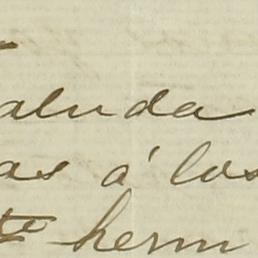 aluda
as á los
te herm